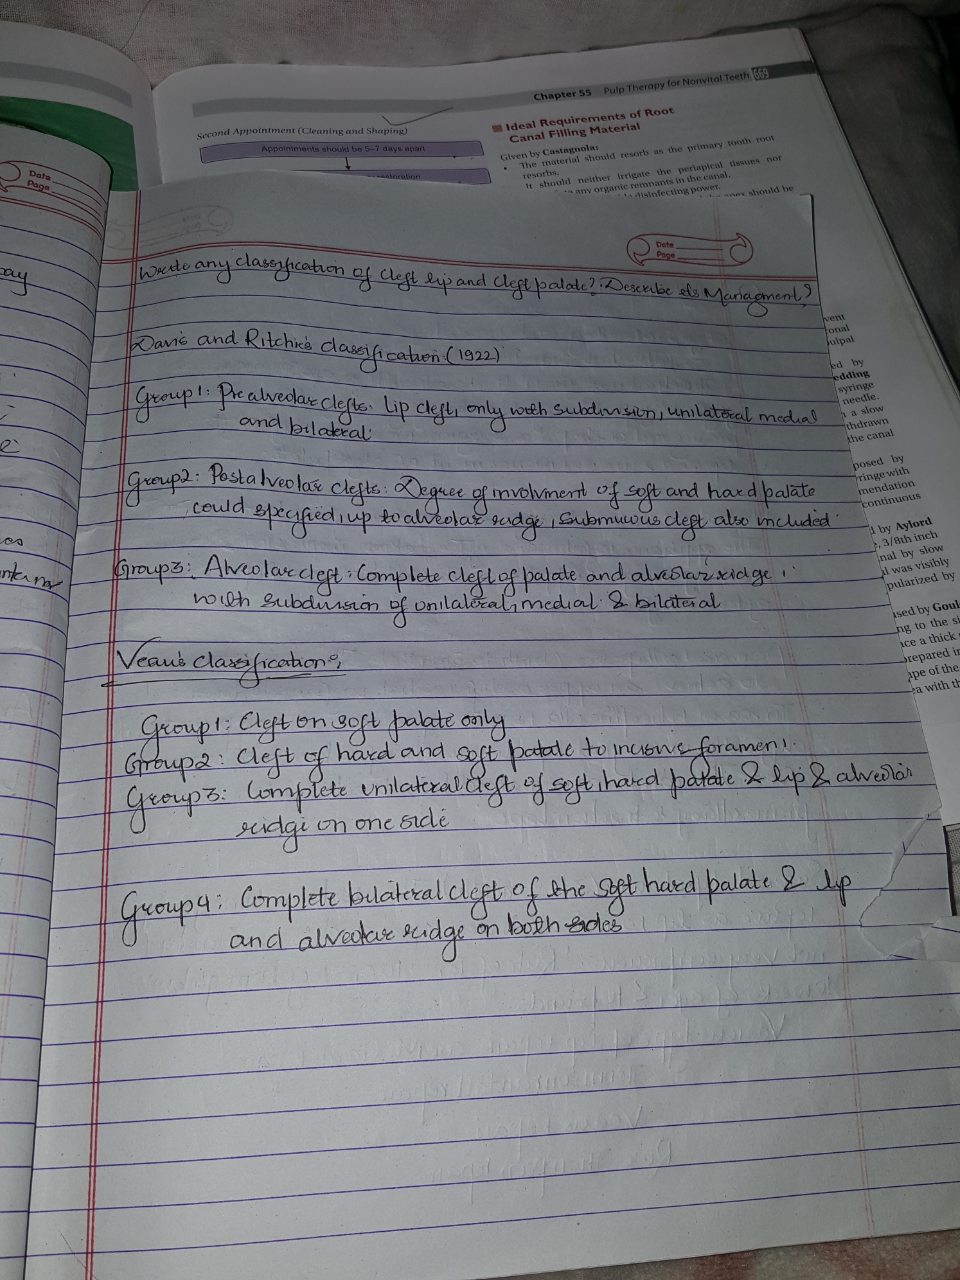 Chapter 55 Pulp Therapy for Nonvital Teeth 669
Second Appointment (Cleaning and Shaping)
Appointments should be 5–7 days apart
Ideal Requirements of Root
Canal Filling Material
Given by Castagnola:
• The material should resorb as the primary tooth root
resorbs.
It should neither irrigate the periapical tissues nor
any organic remnants in the canal.
disinfecting power.
should be
Date
Page
Date
Page
Write any classification of Cleft lip and Cleft palate? Describe its Managment?
Davis and Ritchie's classification (1922)
Group 1: Prealveolar clefts. Lip cleft, only with subdivision, unilateral medial
and bilateral.
Group2: Postalveolar clefts: Degree of involvment of soft and hard palate
could specified, up to alveolar ridge, Submucous cleft also included
Group3: Alveolar cleft: Complete cleft of palate and alveolar ridge,
with subdivision of unilateral, medial & bilateral
Veau's classification:
Group 1: Cleft on soft palate only
Group2: Cleft of hard and soft palate to incisive foramen.
Group3: Complete unilateral cleft of soft, hard palate & lip & alveolar
ridge on one side
Group4: Complete bilateral cleft of the soft hard palate & lip
and alveolar ridge on both sides
ed by
edding
syringe
needle.
a slow
thdrawn
the canal
posed by
ringe with
mendation
continuous
d by Aylord
3/8th inch
nal by slow
l was visibly
pularized by
used by Goul
ng to the s
ace a thick
repared in
ape of the
a with th